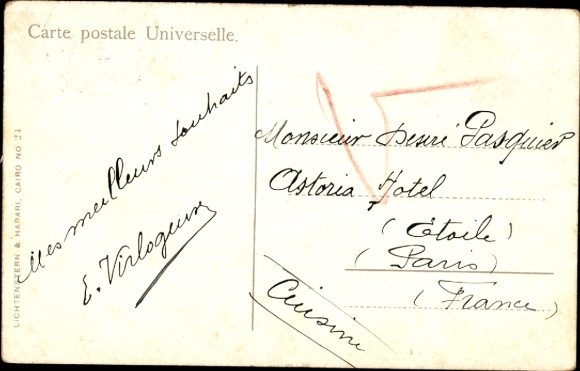 Carte postale Universelle.
Mes meilleurs souhaits
E. Virlogeux
LICHTENSTERN & HARARI, CAIRO No 24
Monsieur Desiré Pasquier
Astoria Hotel
(Etoile)
(Paris)
(France)
Cuisine